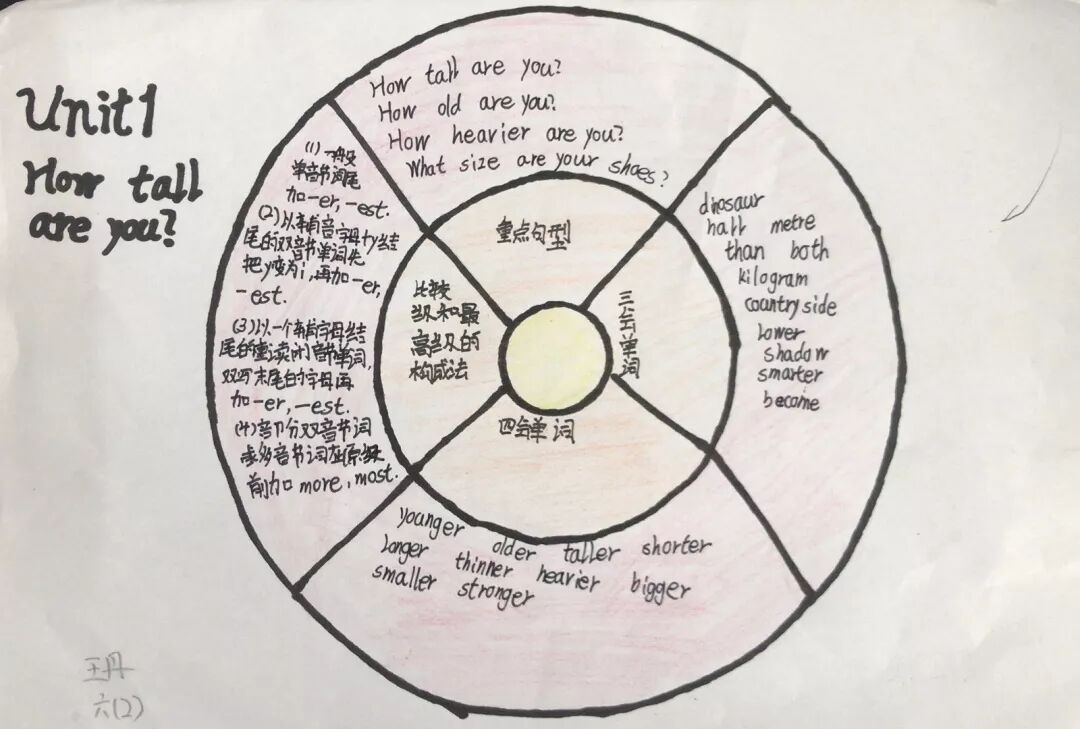 Unit1
How tall
are you?
How tall are you?
How old are you?
How heavier are you?
What size are your shoes?
重点句型
(1)一般
单音节词尾
加-er,-est.
(2)以辅音字母+y结
尾的双音节单词先
把y变为i,再加-er,
-est.
(3)以一个辅音字母结
尾的重读闭音节单词,
双写末尾的字母再
加-er,-est.
(4)部分双音节词
或多音节词在原级
前加more,most.
比较
级和最
高级的
构成法
三会单词
dinosaur
hall metre
than both
kilogram
countryside
lower
shadow
smarter
become
四会单词
younger older taller shorter
longer thinner heavier bigger
smaller stronger
王丹
六(2)